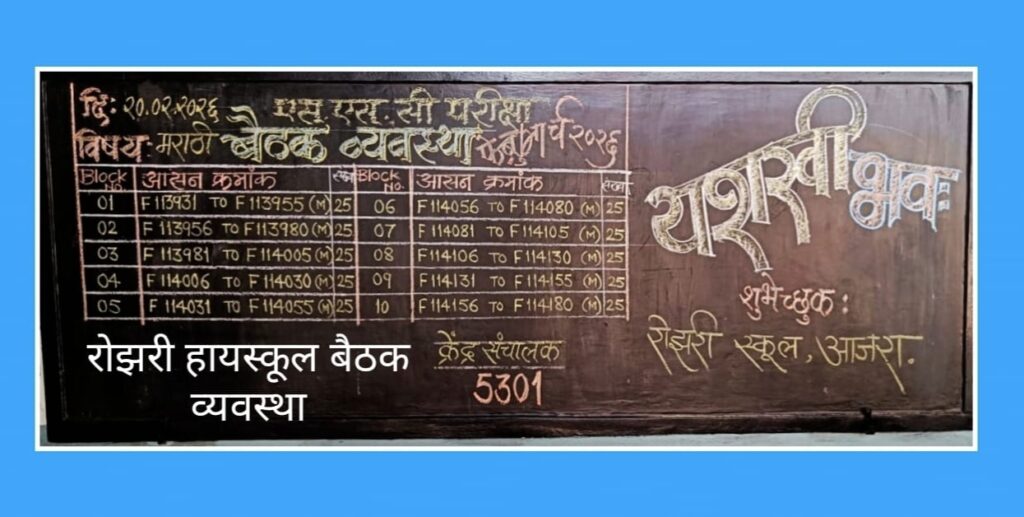 दि: २०.०२.२०२६ एस.एस.सी परीक्षा
विषय: मराठी बैठक व्यवस्था मार्च २०२६
Block No. आसन क्रमांक संख्या Block No. आसन क्रमांक संख्या
01 F 113931 TO F 113955 (M) 25 06 F 114056 TO F 114080 (M) 25
02 F 113956 TO F 113980 (M) 25 07 F 114081 TO F 114105 (M) 25
03 F 113981 TO F 114005 (M) 25 08 F 114106 TO F 114130 (M) 25
04 F 114006 TO F 114030 (M) 25 09 F 114131 TO F 114155 (M) 25
05 F 114031 TO F 114055 (M) 25 10 F 114156 TO F 114180 (M) 25
केंद्र संचालक
5301
यशस्वी भवः
शुभेच्छुक:
रोझरी स्कूल, आजरा.
रोझरी हायस्कूल बैठक
व्यवस्था